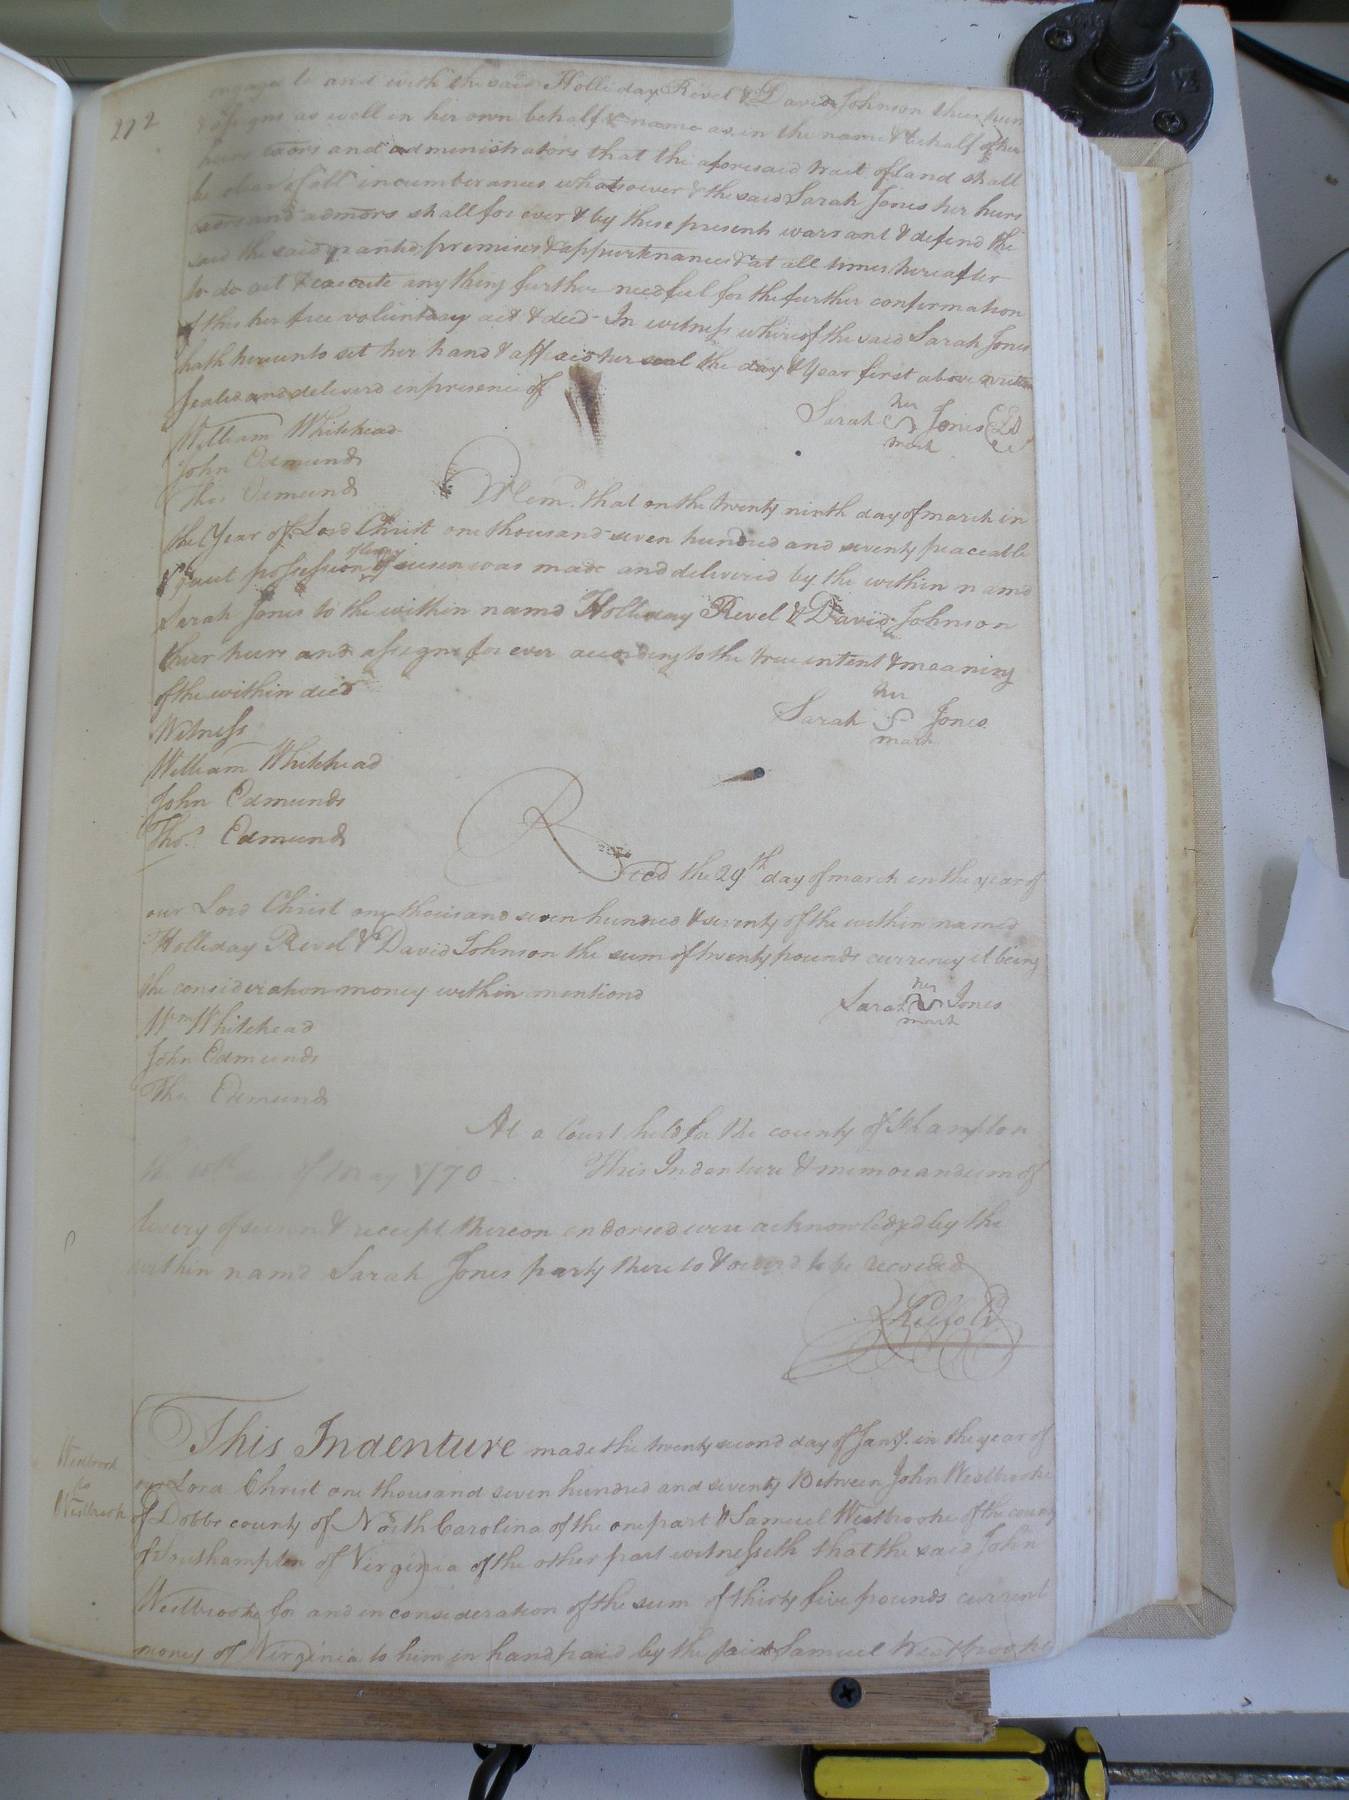 272
engage to and with the said Holliday Revel & David Johnson their heirs
& assigns as well in her own behalf & name as in the name & behalf of her
heirs exors and administrators that the aforesaid tract of land shall
be clear of all incumberances whatsoever & the said Sarah Jones her heirs
exors and admors shall for ever & by these present warrant & defend the
said the said granted premises & appurtenances & at all times hereafter
to do act & execute any thing further needful for the further confirmation
of this her free voluntary act & deed In witness whereof the said Sarah Jones
hath hereunto set her hand & affixed her seal the day & Year first above written
Sealed and deliverd in presence of
Sarah her mark Jones (LS)
William Whitehead
John Edmunds
Thos Edmunds
Memd. that on the twenty ninth day of march in
the Year of Lord Christ one thousand seven hundred and seventy peaceable
& quiet possession of livery of seisen was made and deliverid by the within namd
Sarah Jones to the within namd Holliday Revel & David Johnson
their heirs and assigns for ever according to the true intent & meaning
of the within deed
Sarah her mark Jones
Witness
William Whitehead
John Edmunds
Thos. Edmunds
Recd the 29th day of march in the year of
our Lord Christ one thousand seven hundred & seventy of the within named
Holliday Revel & David Johnson the sum of twenty pounds currency it being
the consideration money within mentiond
Sarah her mark Jones
Wm Whitehead
John Edmunds
Tho Edmunds
At a Court held for the county of Sthampton
the 10th of May 1770 This Indenture & memorandum of
livery of seisen & receipt thereon endorsed were acknowledged by the
within namd Sarah Jones party there to & orderd to be recorded
R Kello Cl
Westbrook
to
Westbrook
This Indenture made the twenty second day of Jany. in the year of
our Lord Christ one thousand seven hundred and seventy Between John Westbrooke
of Dobbs county of North Carolina of the one part & Samuel Westbrooke of the county
of Southampton of Virginia of the other part witnesseth that the said John
Westbrooke for and in consideration of the sum of thirty five pounds current
money of Virginia to him in hand paid by the said Samuel Westbrooke